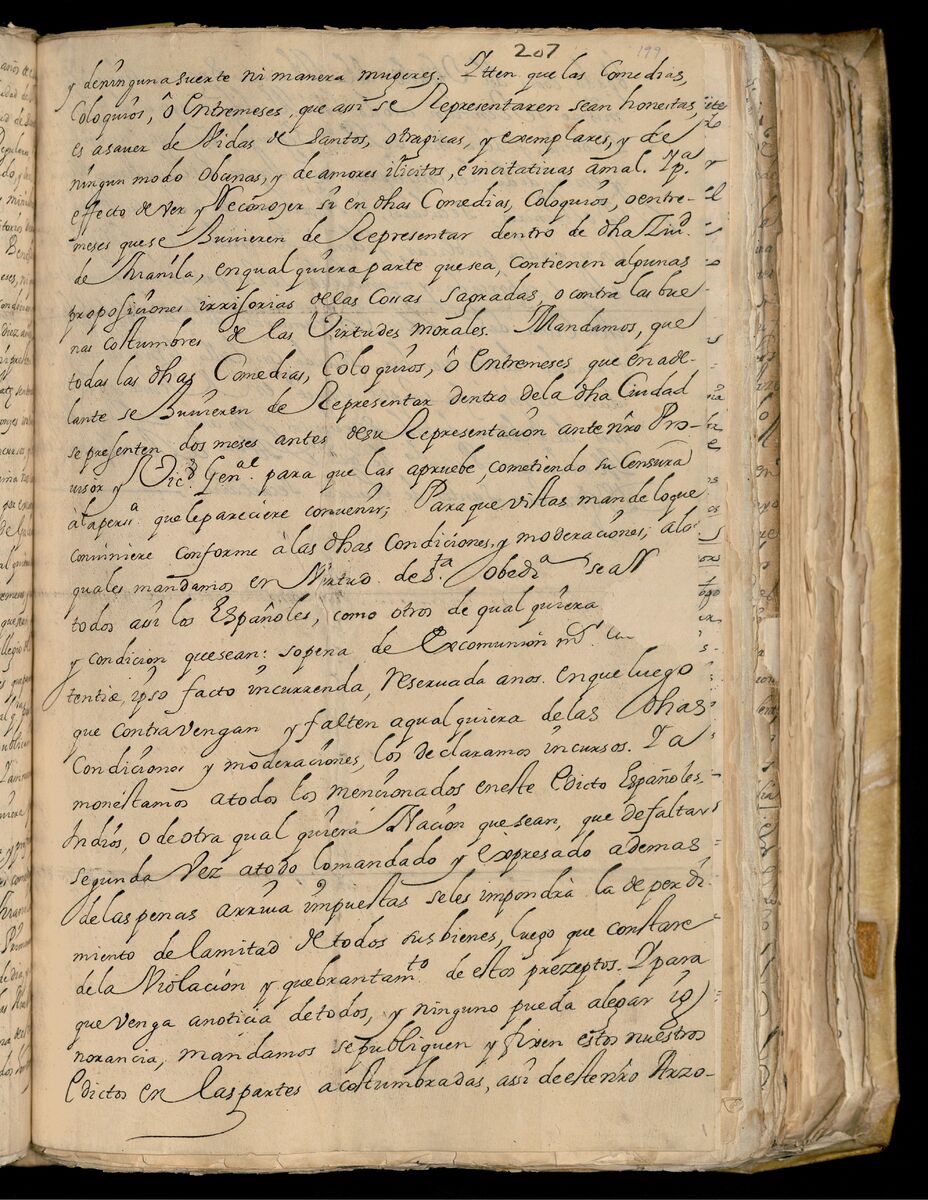 207
199
y deninguna suerte ni manera mugeres. Itten que las Comedias,
Coloquios, ô Entremeses, que assi se Representaren sean honestas,
es asauer de Vidas de Santos, o tragicas, y exemplares, y de
ningun modo obcenas, y de amores ilicitos, e incitativas amal. Ip.ª
effecto de ver y Reconojer si en dhas Comedias, Coloquios, o entre-
meses que se Buuieren de Representar dentro de dha Ziu.d
de Manila, en qual quiera parte que sea, contienen algunas
proposiciones irrisorias de las Cossas Sagradas, o contra las bue-
nas costumbres de las Virtudes morales. Mandamos, que
todas las dhas Comedias, Coloquios, ô Entremeses que en ade-
lante se Buuieren de Representar dentro dela dha Ciudad
se presenten dos meses antes desu Representación ante nro Pro-
uisor y Vic.º Gen.al para que las apruebe, cometiendo su Censura
à la pers.ª que le pareciere convenir; Para que vistas mande lo que
conviniere conforme à las dhas Condiciones, y moderaciones; alo
quales mandamos en Virtud de S.ta Obed.ª sean
todos assi los Españoles, como otros de qual quiera
y condicion que sean: sopena de Excomunión
tentiæ, ipso facto incurrenda, reseruada anos. En que luego
que contravengan y falten a qual quiera de las dhas
Condiciones y moderaciones, los declaramos incursos. I a
monestamos atodos los mencionados en este Edicto Españoles,
Indios, o de otra qual quiera Nación que sean, que de faltar
segunda Vez atodo lo mandado y expresado ademas
de las penas arriua impuestas seles impondra la de perdi
miento de la mitad de todos sus bienes, luego que constare
de la Violación y quebrantam.to de estos prezeptos. I para
que venga a noticia de todos, y ninguno pueda alegar ig)
norancia, mandamos se publiquen y fixen estos nuestros
Edictos en las partes acostumbradas, assi de este nro Arzo-